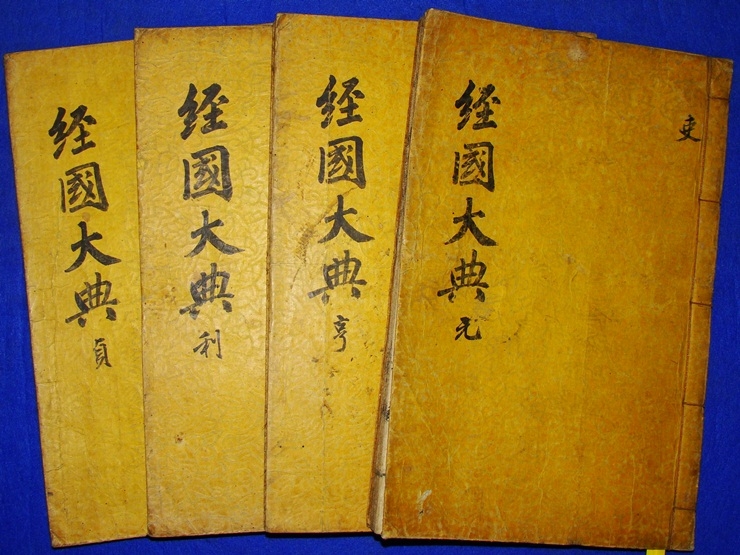 吏
經國大典 元
經國大典 亨
經國大典 利
經國大典 貞